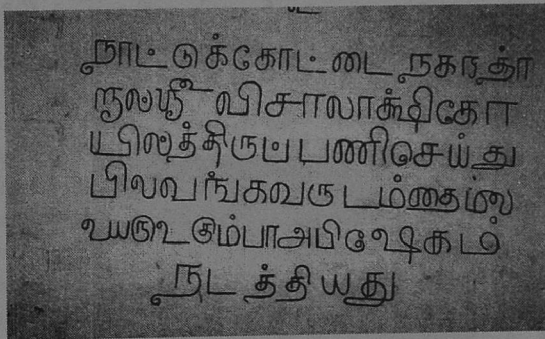 நாட்டுக்கோட்டை நகரத்தா
ரால் ஸ்ரீ விசாலாக்ஷிகோ
யில்த்திருப்பணிசெய்து
பிலவங்கவருடம்தைமீ
கும்பாஅபிஷேகம்
நடத்தியது